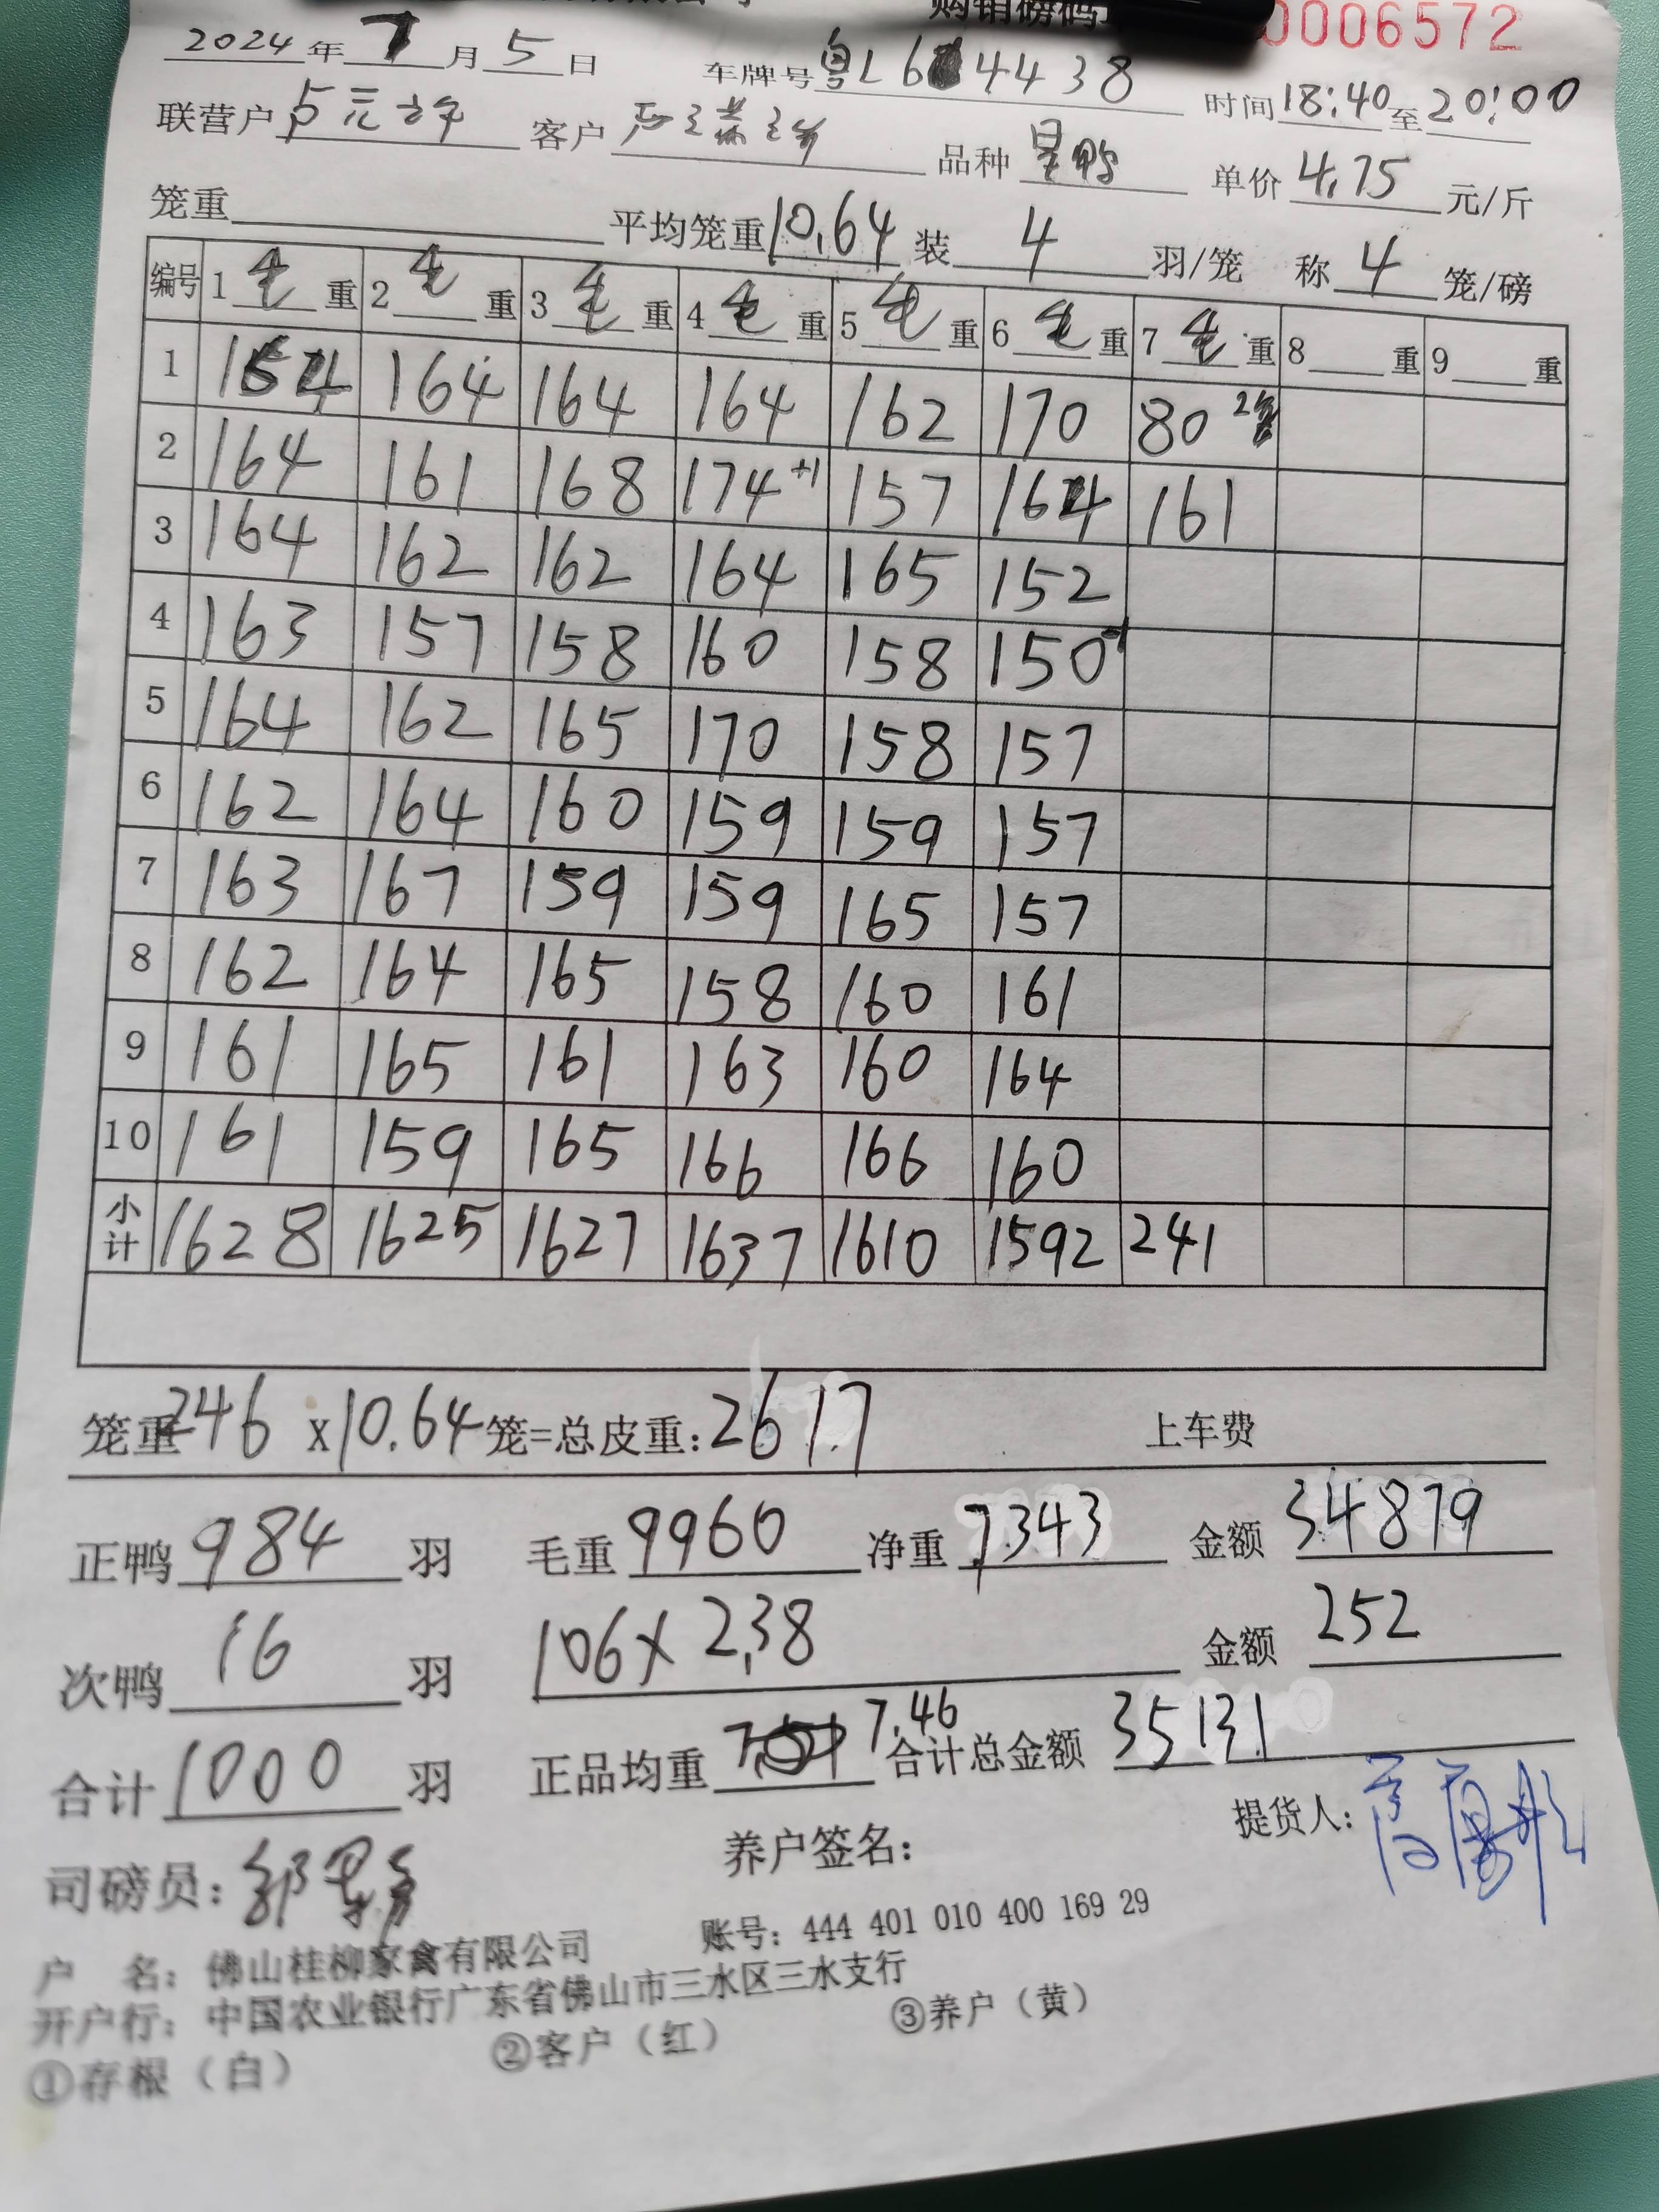 购销磅码
0006572
2024年7月5日 车牌号粤L 64438 时间18:40至20:00
联营户 客户 品种 单价4.75元/斤
笼重 平均笼重10.64装4羽/笼 称4笼/磅
编号 1毛重 2毛重 3毛重 4毛重 5毛重 6毛重 7毛重 8重 9重
1 164 164 164 164 162 170 80
2 164 161 168 174+1 157 164 161
3 164 162 162 164 165 152
4 163 157 158 160 158 150-1
5 164 162 165 170 158 157
6 162 164 160 159 159 157
7 163 167 159 159 165 157
8 162 164 165 158 160 161
9 161 165 161 163 160 164
10 161 159 165 166 166 160
小计 1628 1625 1627 1637 1610 1592 241
笼重246x10.64笼=总皮重:2617 上车费
正鸭984羽 毛重9960 净重7343 金额34879
次鸭16羽 106x2.38 金额252
合计1000羽 正品均重7.46 合计总金额35131
司磅员: 养户签名: 提货人:
户 名：佛山桂柳家禽有限公司 账号：444 401 010 400 169 29
开户行：中国农业银行广东省佛山市三水区三水支行
①存根（白） ②客户（红） ③养户（黄）